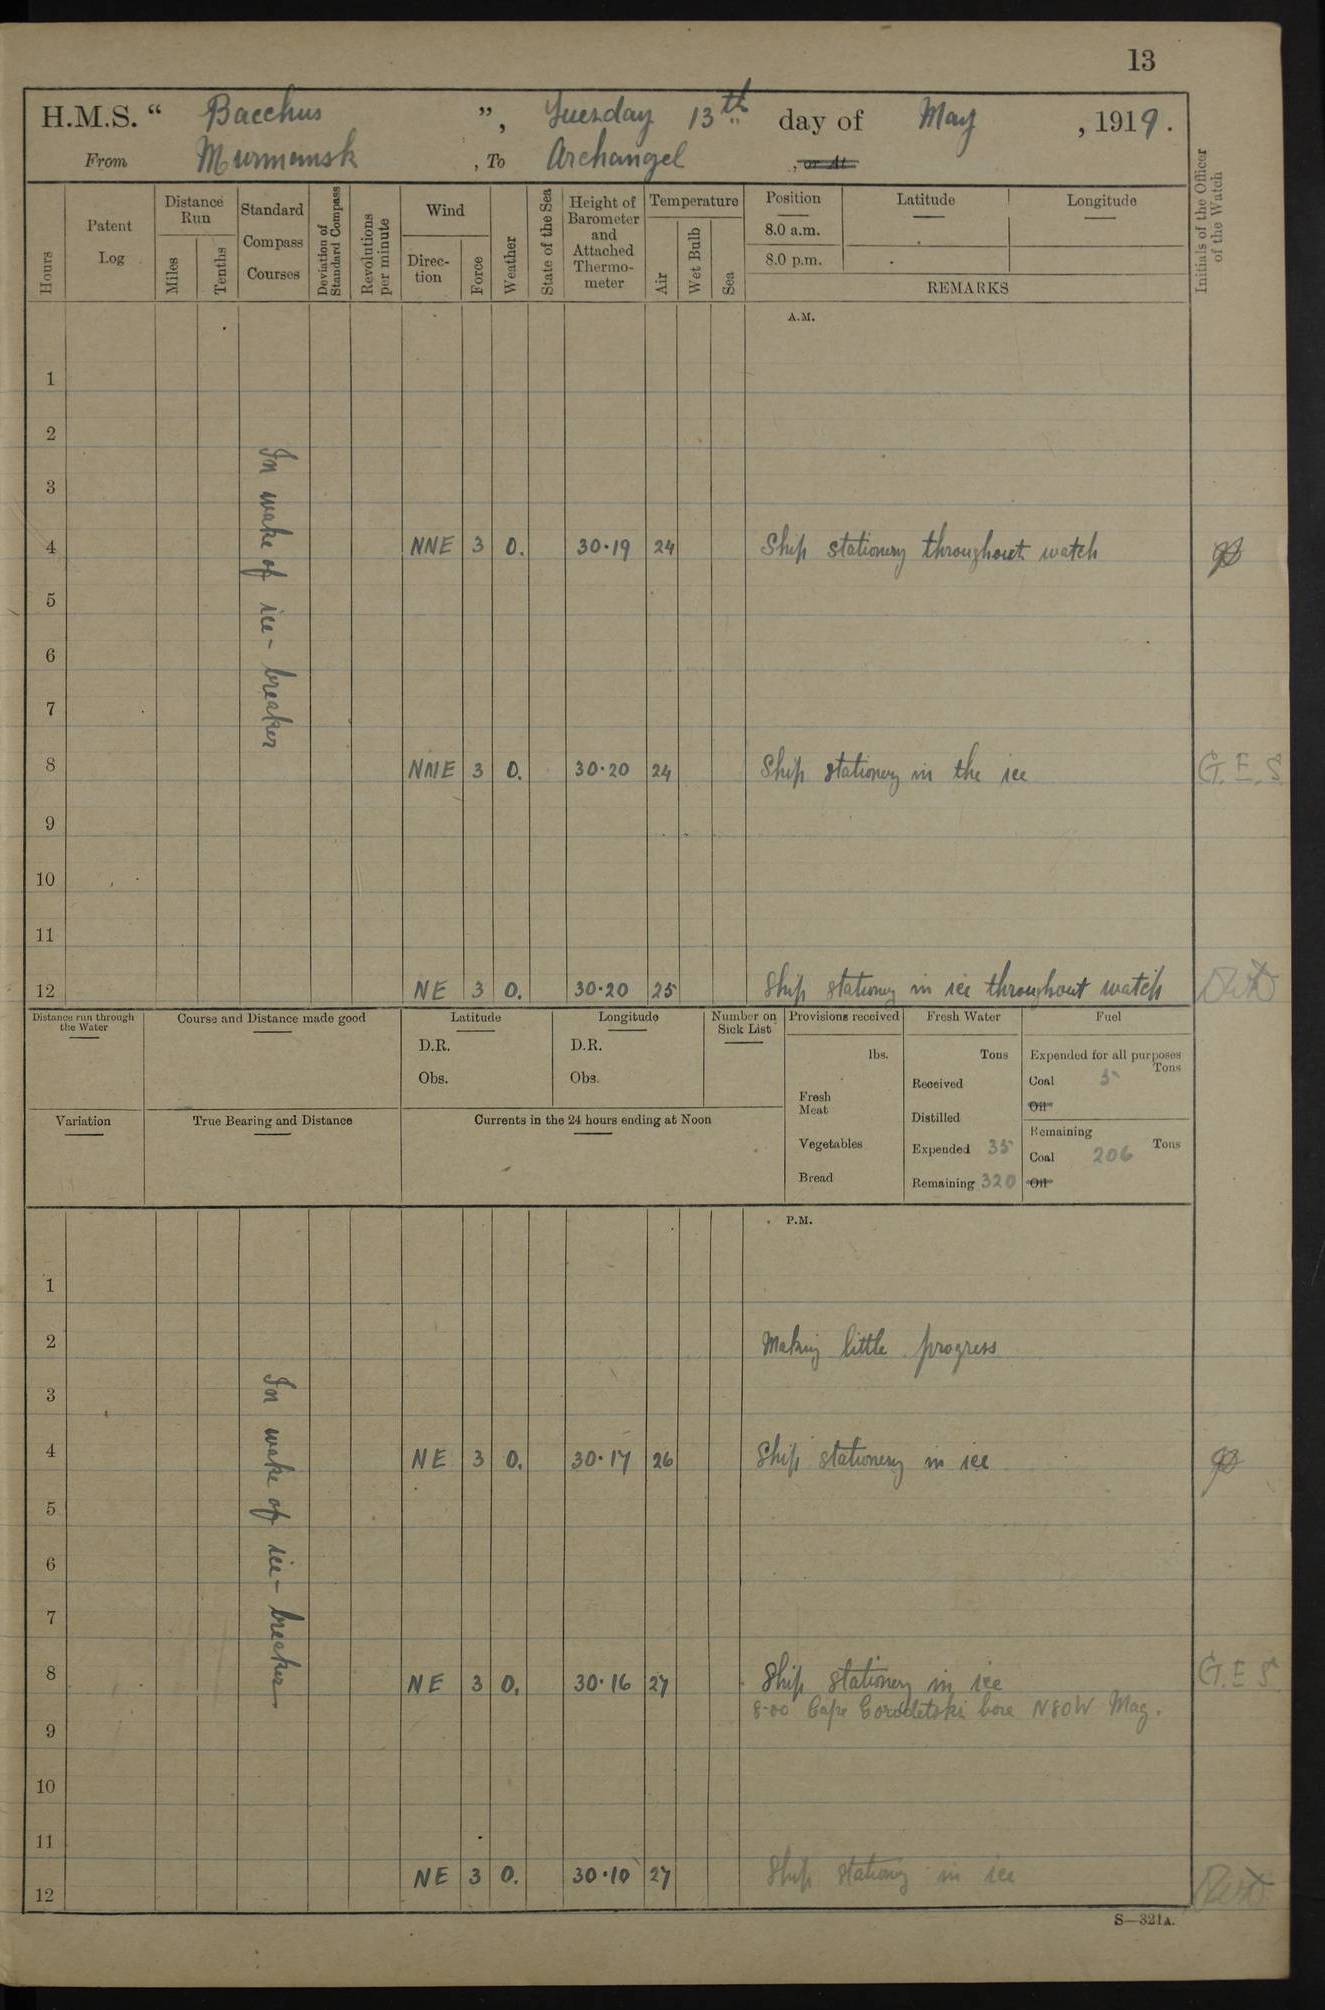 13
H.M.S. “ Bacchus ”, Tuesday 13th day of May , 1919.
From Murmansk , To Archangel , or At
Hours
Patent Log
Distance Run
Miles
Tenths
Standard Compass Courses
Deviation of Standard Compass
Revolutions per minute
Wind
Direction
Force
Weather
State of the Sea
Height of Barometer and Attached Thermometer
Temperature
Air
Wet Bulb
Sea
Position
8.0 a.m.
8.0 p.m.
Latitude
Longitude
REMARKS
Initials of the Officer of the Watch
A.M.
In wake of ice-breaker
1
2
3
4 NNE 3 O. 30·19 24 Ship stationery throughout watch
5
6
7
8 NNE 3 O. 30·20 24 Ship stationery in the ice G.E.S
9
10
11
12 NE 3 O. 30·20 25 Ship stationery in ice throughout watch
Distance run through the Water
Course and Distance made good
Latitude
D.R.
Obs.
Longitude
D.R.
Obs.
Number on Sick List
Provisions received
lbs.
Fresh Meat
Vegetables
Bread
Fresh Water
Tons
Received
Distilled
Expended 35
Remaining 320
Fuel
Expended for all purposes
Tons
Coal 5
Oil
Remaining
Tons
Coal 206
Oil
Variation
True Bearing and Distance
Currents in the 24 hours ending at Noon
P.M.
In wake of ice-breaker
1
2 Making little progress
3
4 NE 3 O. 30·17 26 Ship stationery in ice
5
6
7
8 NE 3 O. 30·16 27 Ship stationery in ice G.E S
8·00 Cape Gorodetski bore N80W Mag.
9
10
11
12 NE 3 O. 30·10 27 Ship stationery in ice
S—321A.